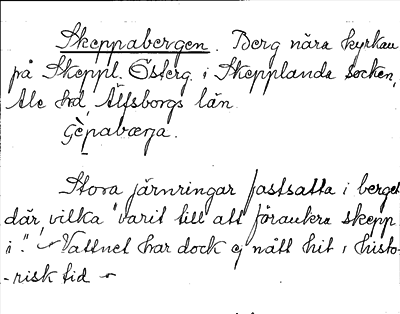 Skeppabergen. Berg nära kyrkan
på Skeppl. Österg. i Skepplanda socken,
Ale hd, Älfsborgs län.
Stora järnringar fastsatta i berget
där, vilka "varit till att förankra skepp
i." – Vattnet har dock ej nått hit i histo-
-risk tid –